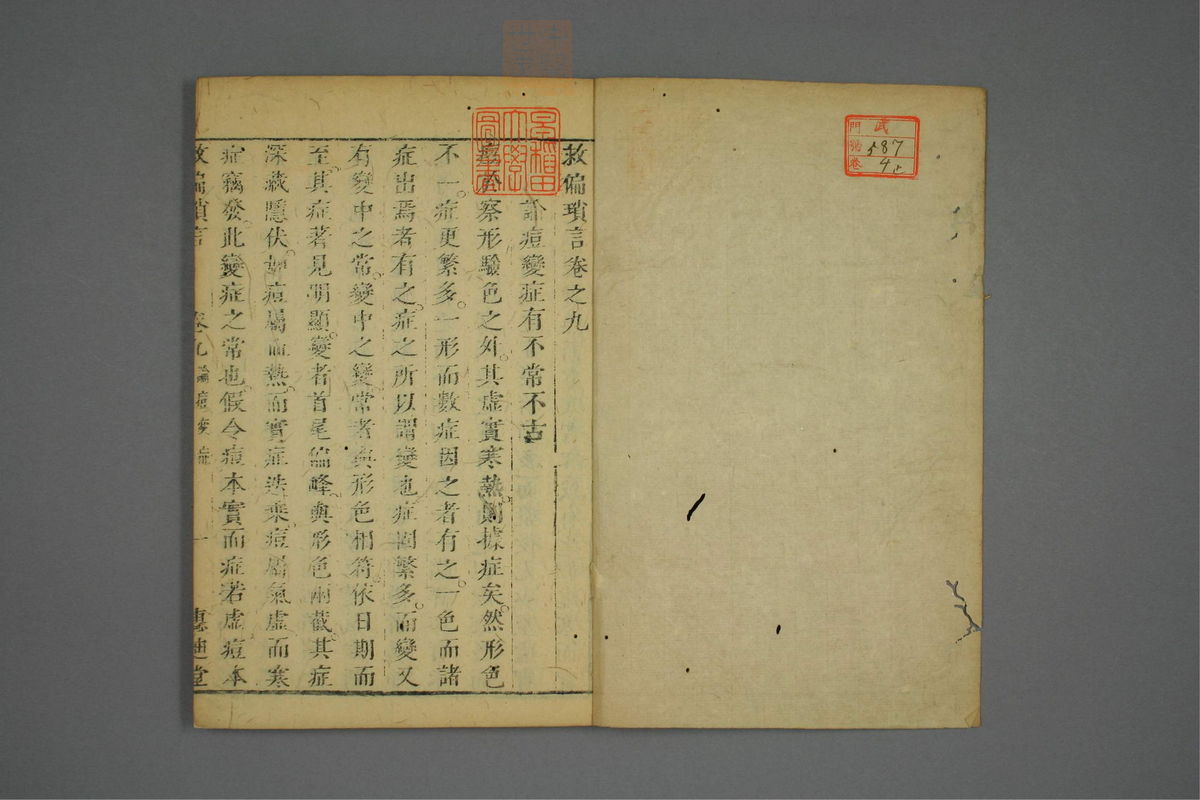 門 武
號 587
卷 4止
早稲田大學圖書
救偏瑣言卷之九
論痘變症有不常不古
痘於察形驗色之外。其虛實寒熱。則據症矣。然形色
不一。症更繁多。一形而數症因之者有之。一色而諸
症出焉者有之。症之所以謂變也。症固繁多。而變又
有變中之常。變中之變。常者與形色相符。依日期而
至。其症著見明顯。變者首尾偏峰。與形色兩截。其症
深藏隱伏。如痘屬血熱而實症迭乘。痘屬氣虛而寒
症竊發。此變症之常也。假令痘本實而症若虛。痘本
救偏瑣言 卷九 論痘變症 一 惠迪堂